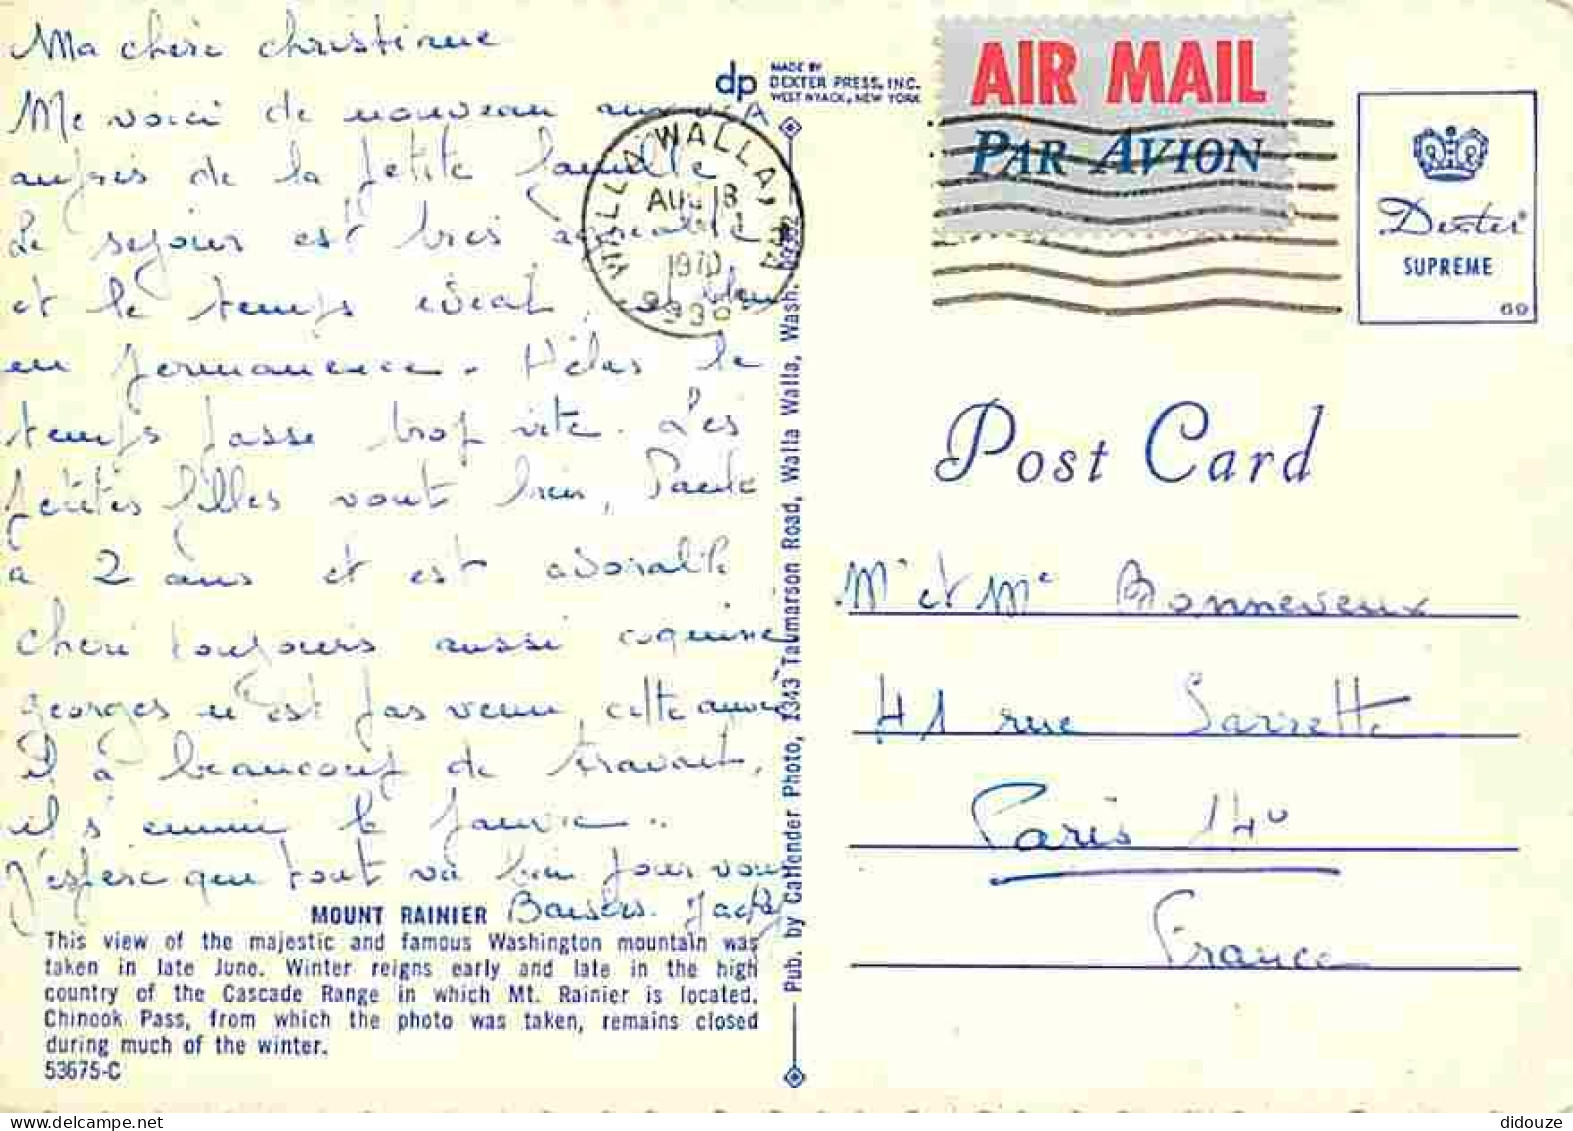 Ma chère christine
Me voici de nouveau aux USA
auprès de la petite famille
Le sejour est tres agreable
et le temps ideal, bleu
en permanence. Hélas le
temps passe trop vite. Les
petites filles vont bien, Paule
a 2 ans et est adorable
cheri toujours aussi coquine
georges n'est pas venu cette année
il à beaucoup de travail,
il s'ennuie le pauvre..
J'espere que tout va bien pour vous
Baisers. Jacky
MOUNT RAINIER
This view of the majestic and famous Washington mountain was
taken in late June. Winter reigns early and late in the high
country of the Cascade Range in which Mt. Rainier is located.
Chinook Pass, from which the photo was taken, remains closed
during much of the winter.
53675-C
dp
MADE BY
DEXTER PRESS, INC.
WEST NYACK, NEW YORK
WALLA WALLA,
AUG 18
1970
Pub. by Callender Photo, 1343 Taumarson Road, Walla Walla, Wash.
AIR MAIL
PAR AVION
Dexter®
SUPREME
69
Post Card
Mr et Me Bonneveux
41 rue Sarrette
Paris 14e
France
didouze